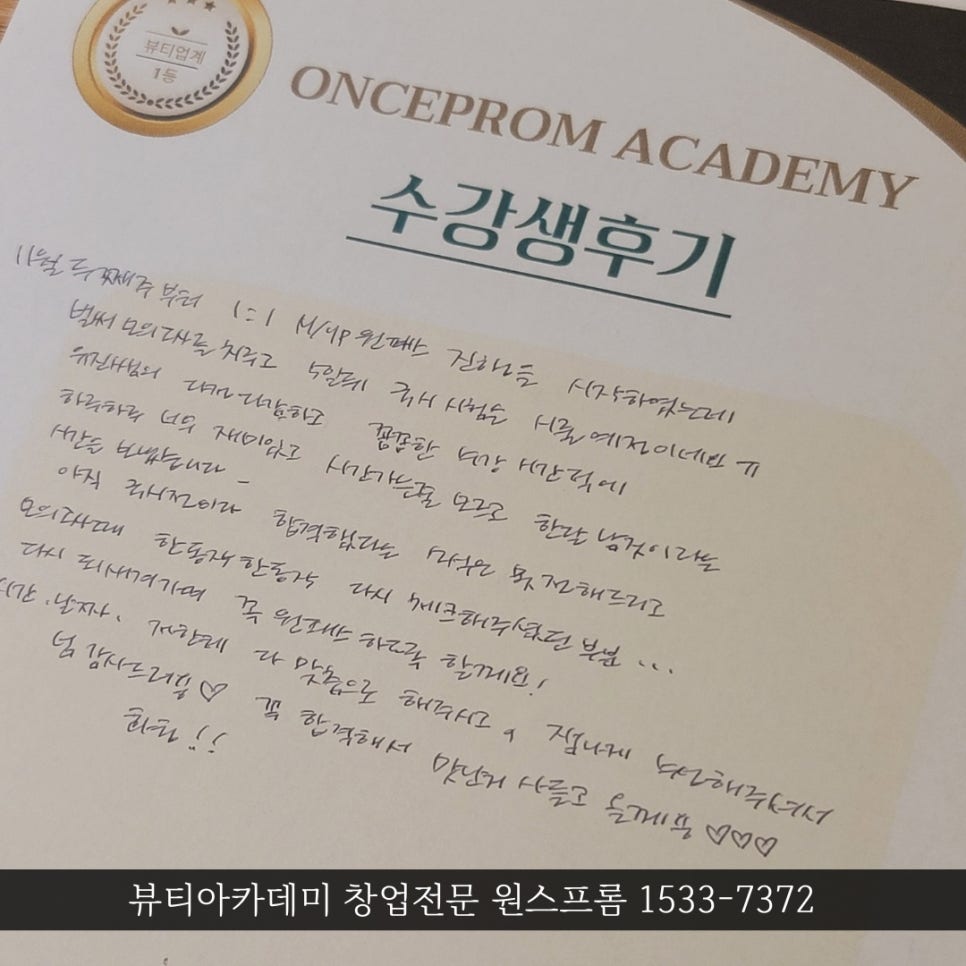 뷰티업계
1등
ONCEPROM ACADEMY
수강생후기
11월 두째주 부터 1:1 M/up 원패스 진행을 시작하였는데
벌써 모의고사를 치루고 5일뒤 국시 시험을 치룰 예정이네요 ㅠ
유진쌤의 다정다감하고 꼼꼼한 수강 시간덕에
하루하루 너무 재미있고 시간가는줄 모르고 한달 남짓이라는
시간을 보냈습니다
아직 국시전이라 합격했다는 소식은 못 전해드리고
모의고사때 한동작 한동작 다시 체크해주셨던 부분...
다시 되새겨가며 꼭 원패스 하도록 할께요!
시간, 날짜, 저한테 다 맞춤으로 해주시고,
넘 감사드려용♡ 꼭 합격해서 맛난거 사들고 올께용 ♡♡♡
화팅!!
뷰티아카데미 창업전문 원스프롬 1533-7372